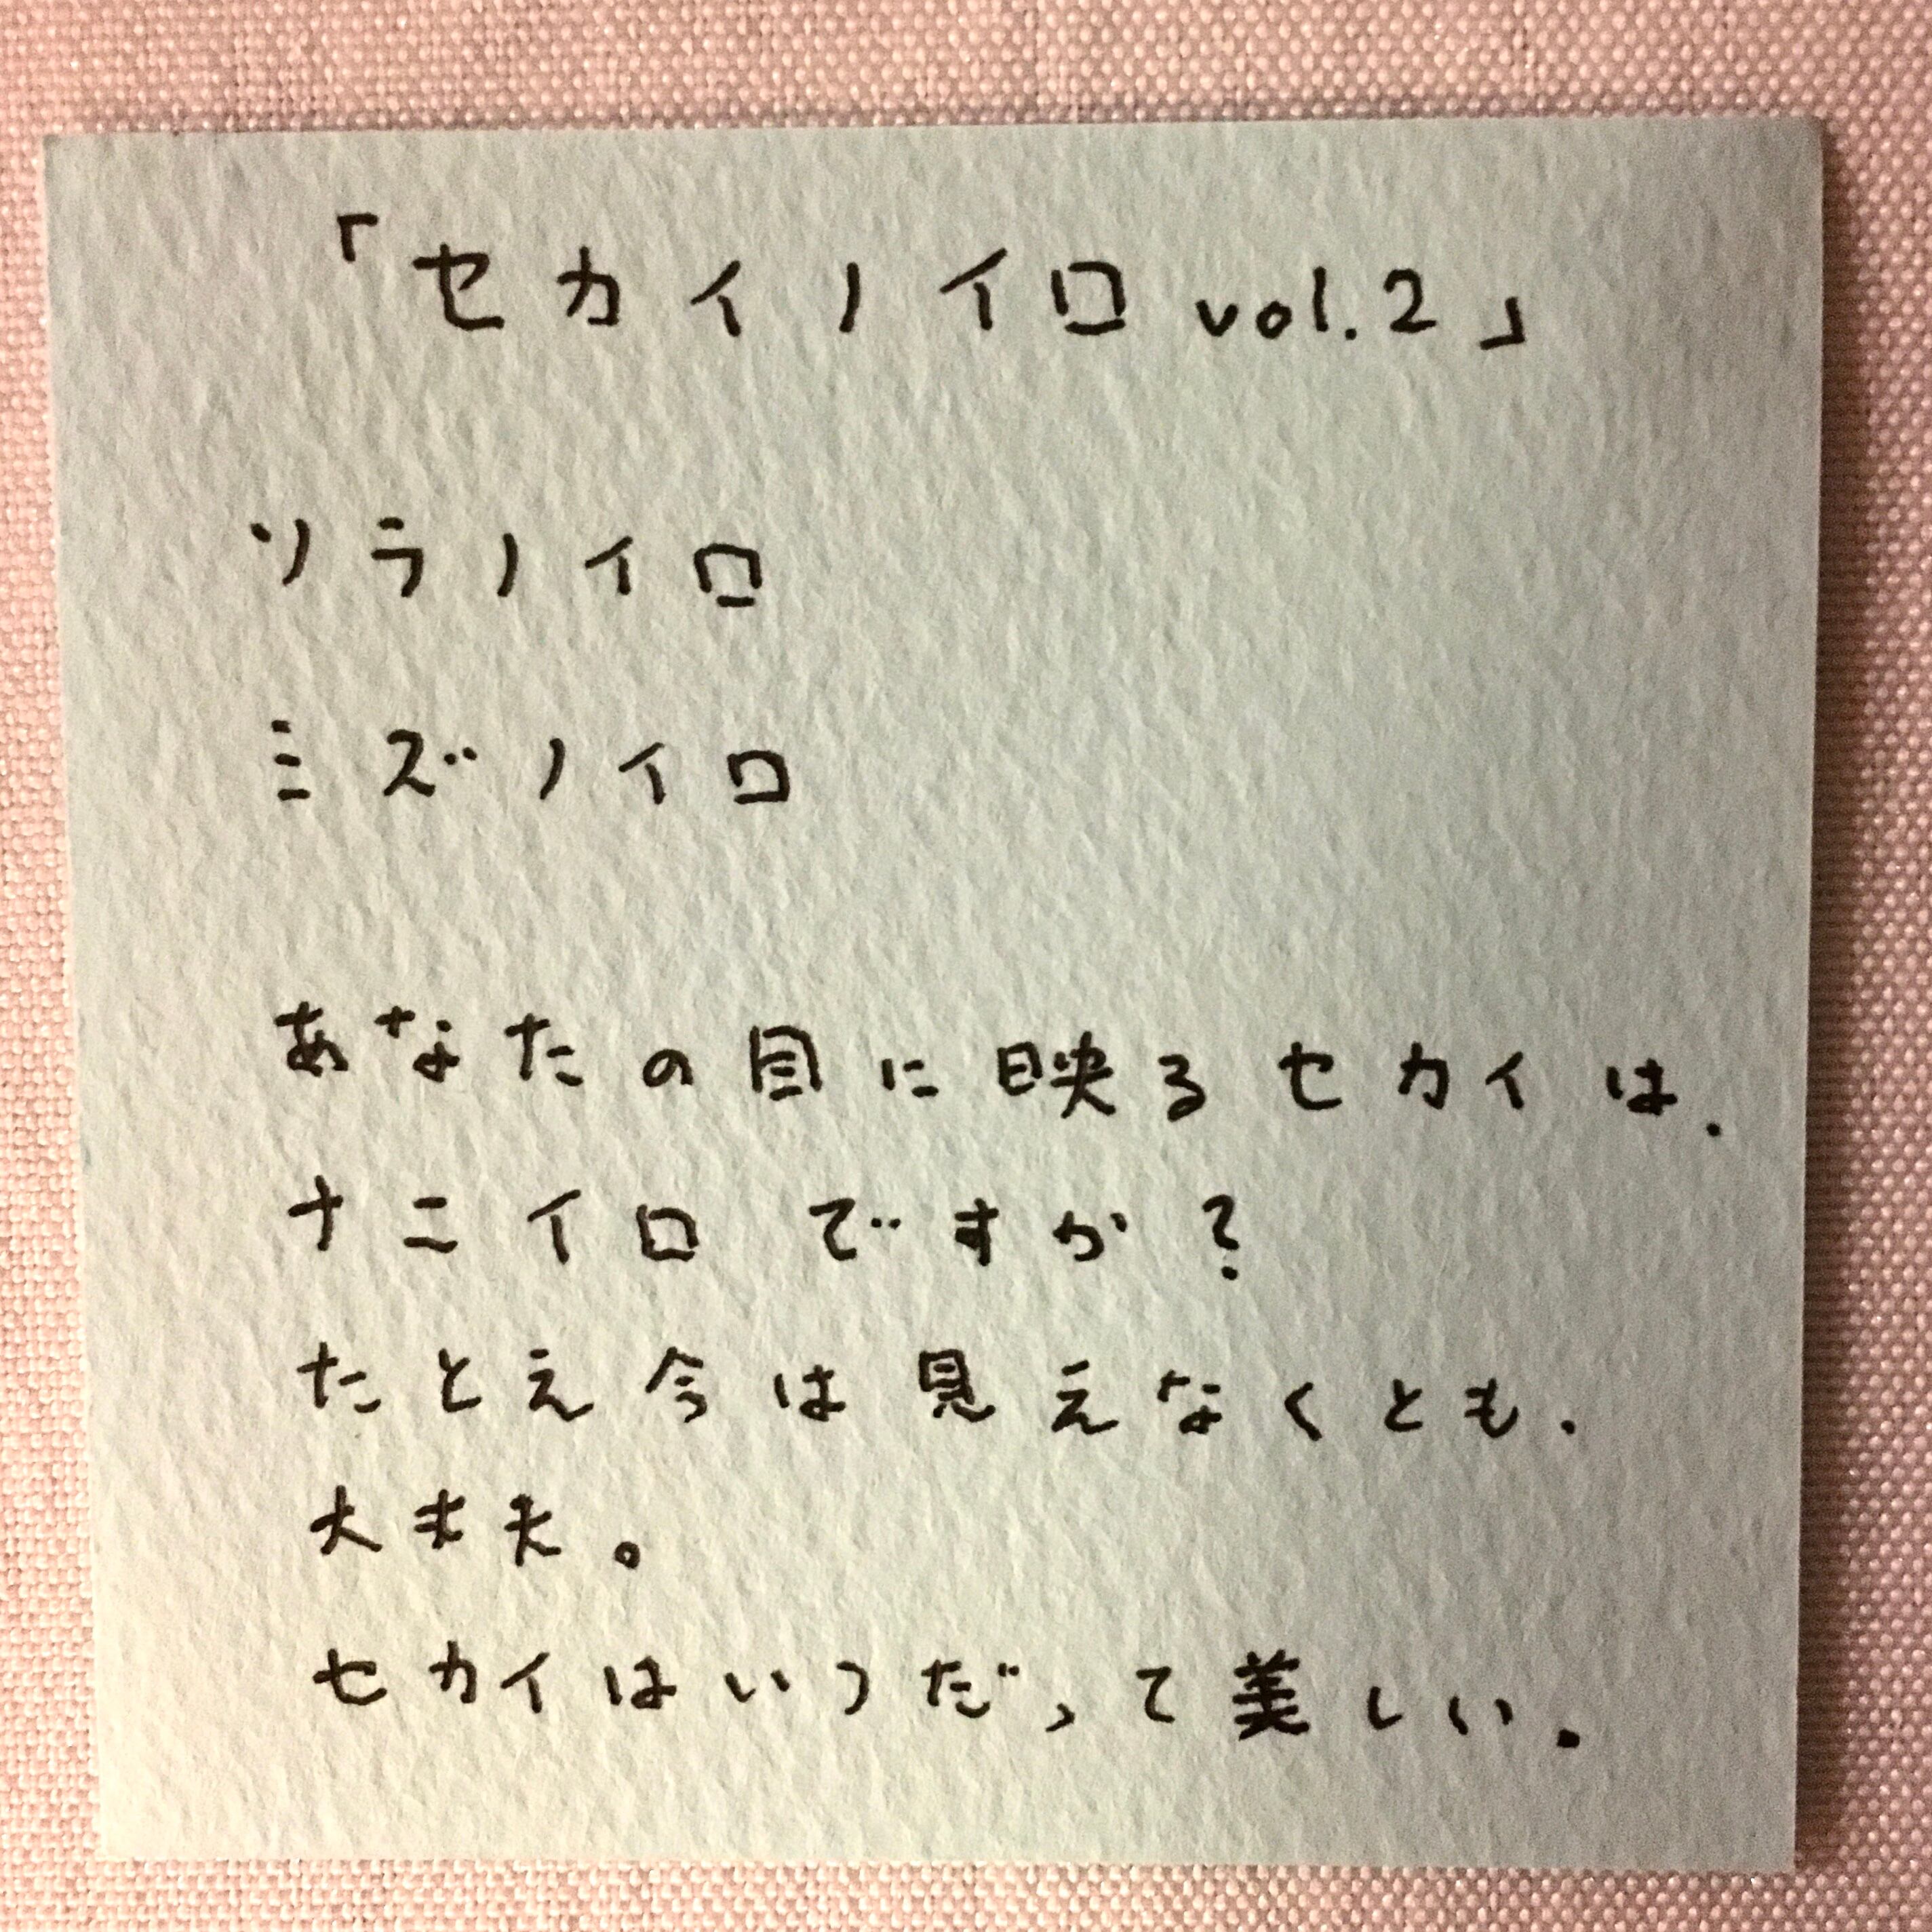 「セカイノイロ vol.2」
ソラノイロ
ミズノイロ
あなたの目に映るセカイは、
ナニイロですか?
たとえ今は見えなくとも、
大丈夫。
セカイはいつだって美しい。